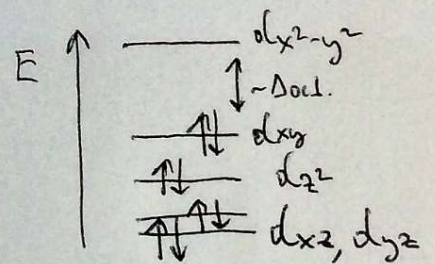 E
dx²-y²
~Δoct.
dxy
dz²
dxz, dyz